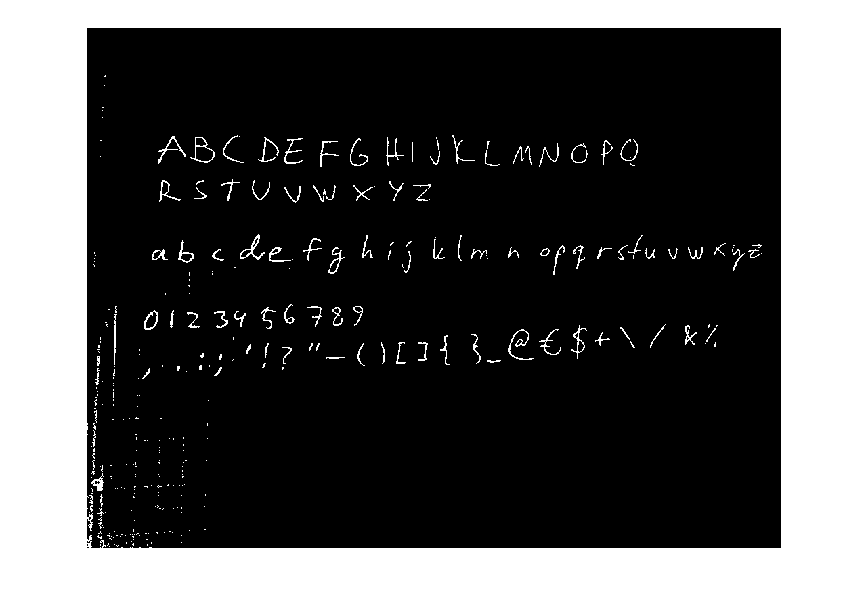 ABCDEFGHIJKLMNOPQ
RSTUVWXYZ
abcdefghijklmnopqrstuvwxyz
0123456789
,..:;'!?"-()[]{}_@€$+\/&%